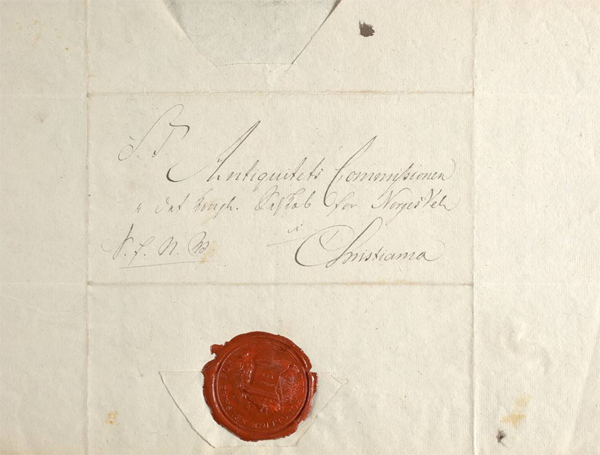 S. T.
Antiquitets Commissionen
i det kongl. Selskab for Norges Vel
S. f. N. V. i
Christiania